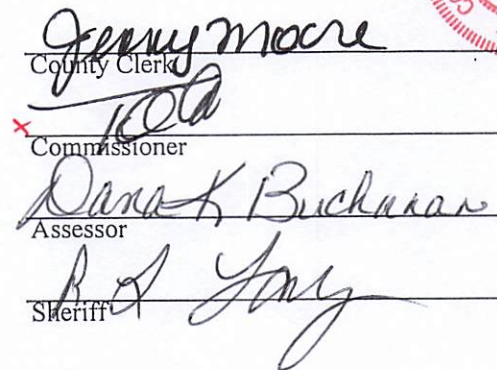 Jenny Moore
County Clerk
Commissioner
Dana K Buchanan
Assessor
Sheriff